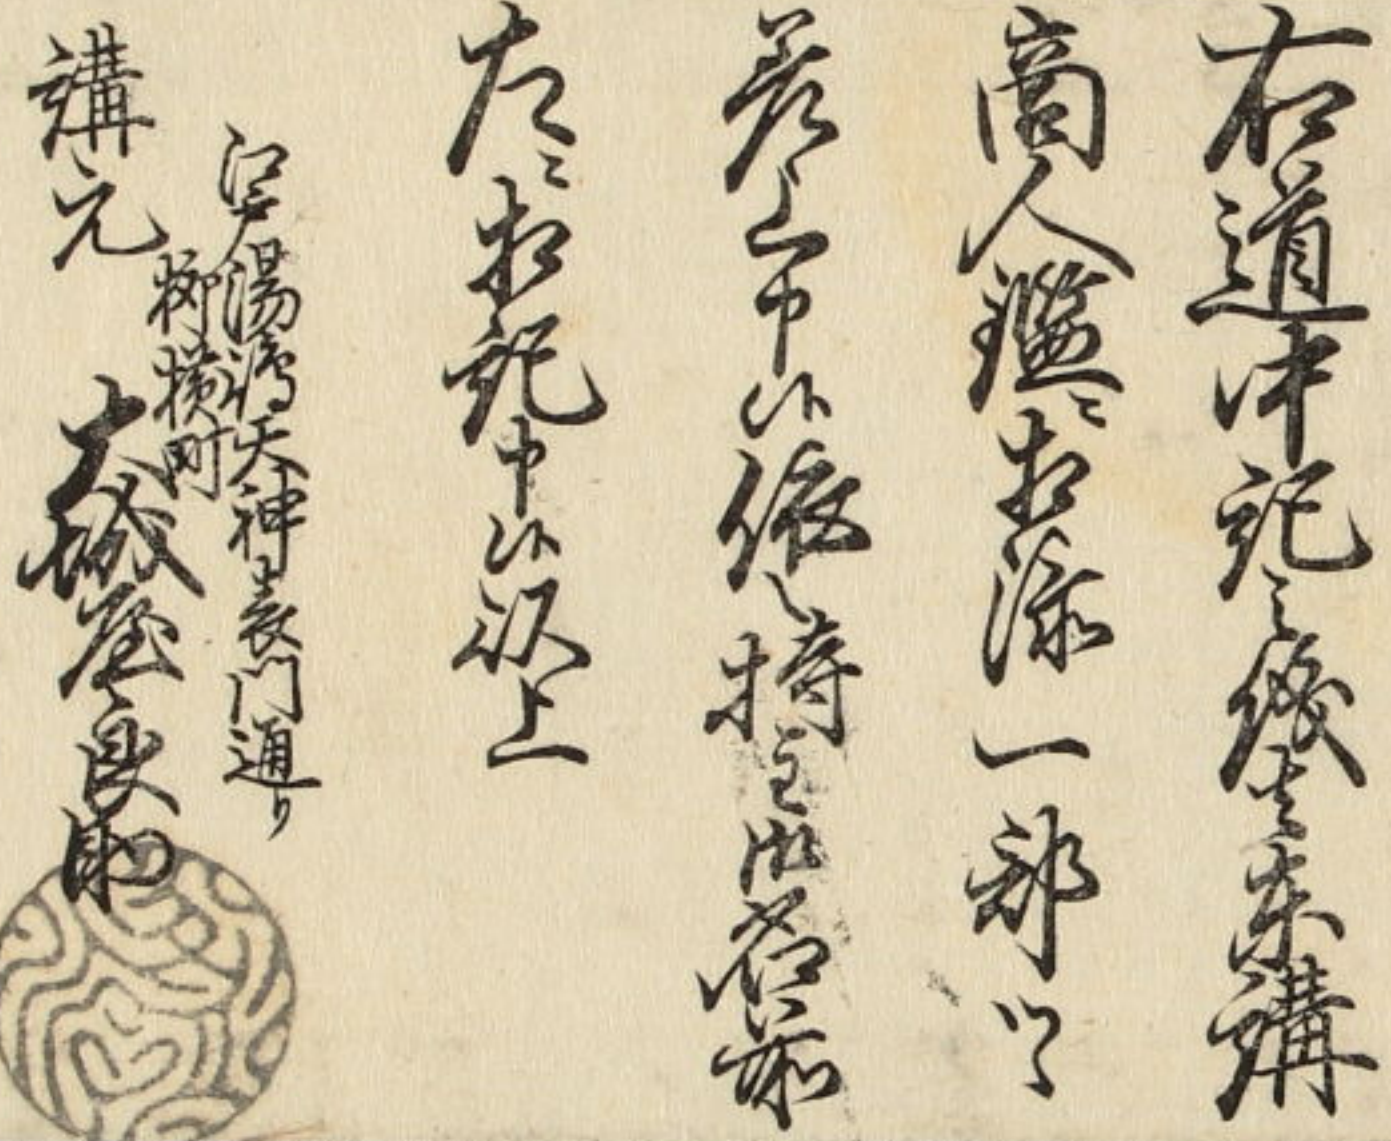 右道中記之儀者東講
商人鑑ニ相添一部ツヽ
差上申候依之持主御名前
左ニ相記申候以上
江戸湯嶋天神表門通り
柳横町
講元 大城屋良助